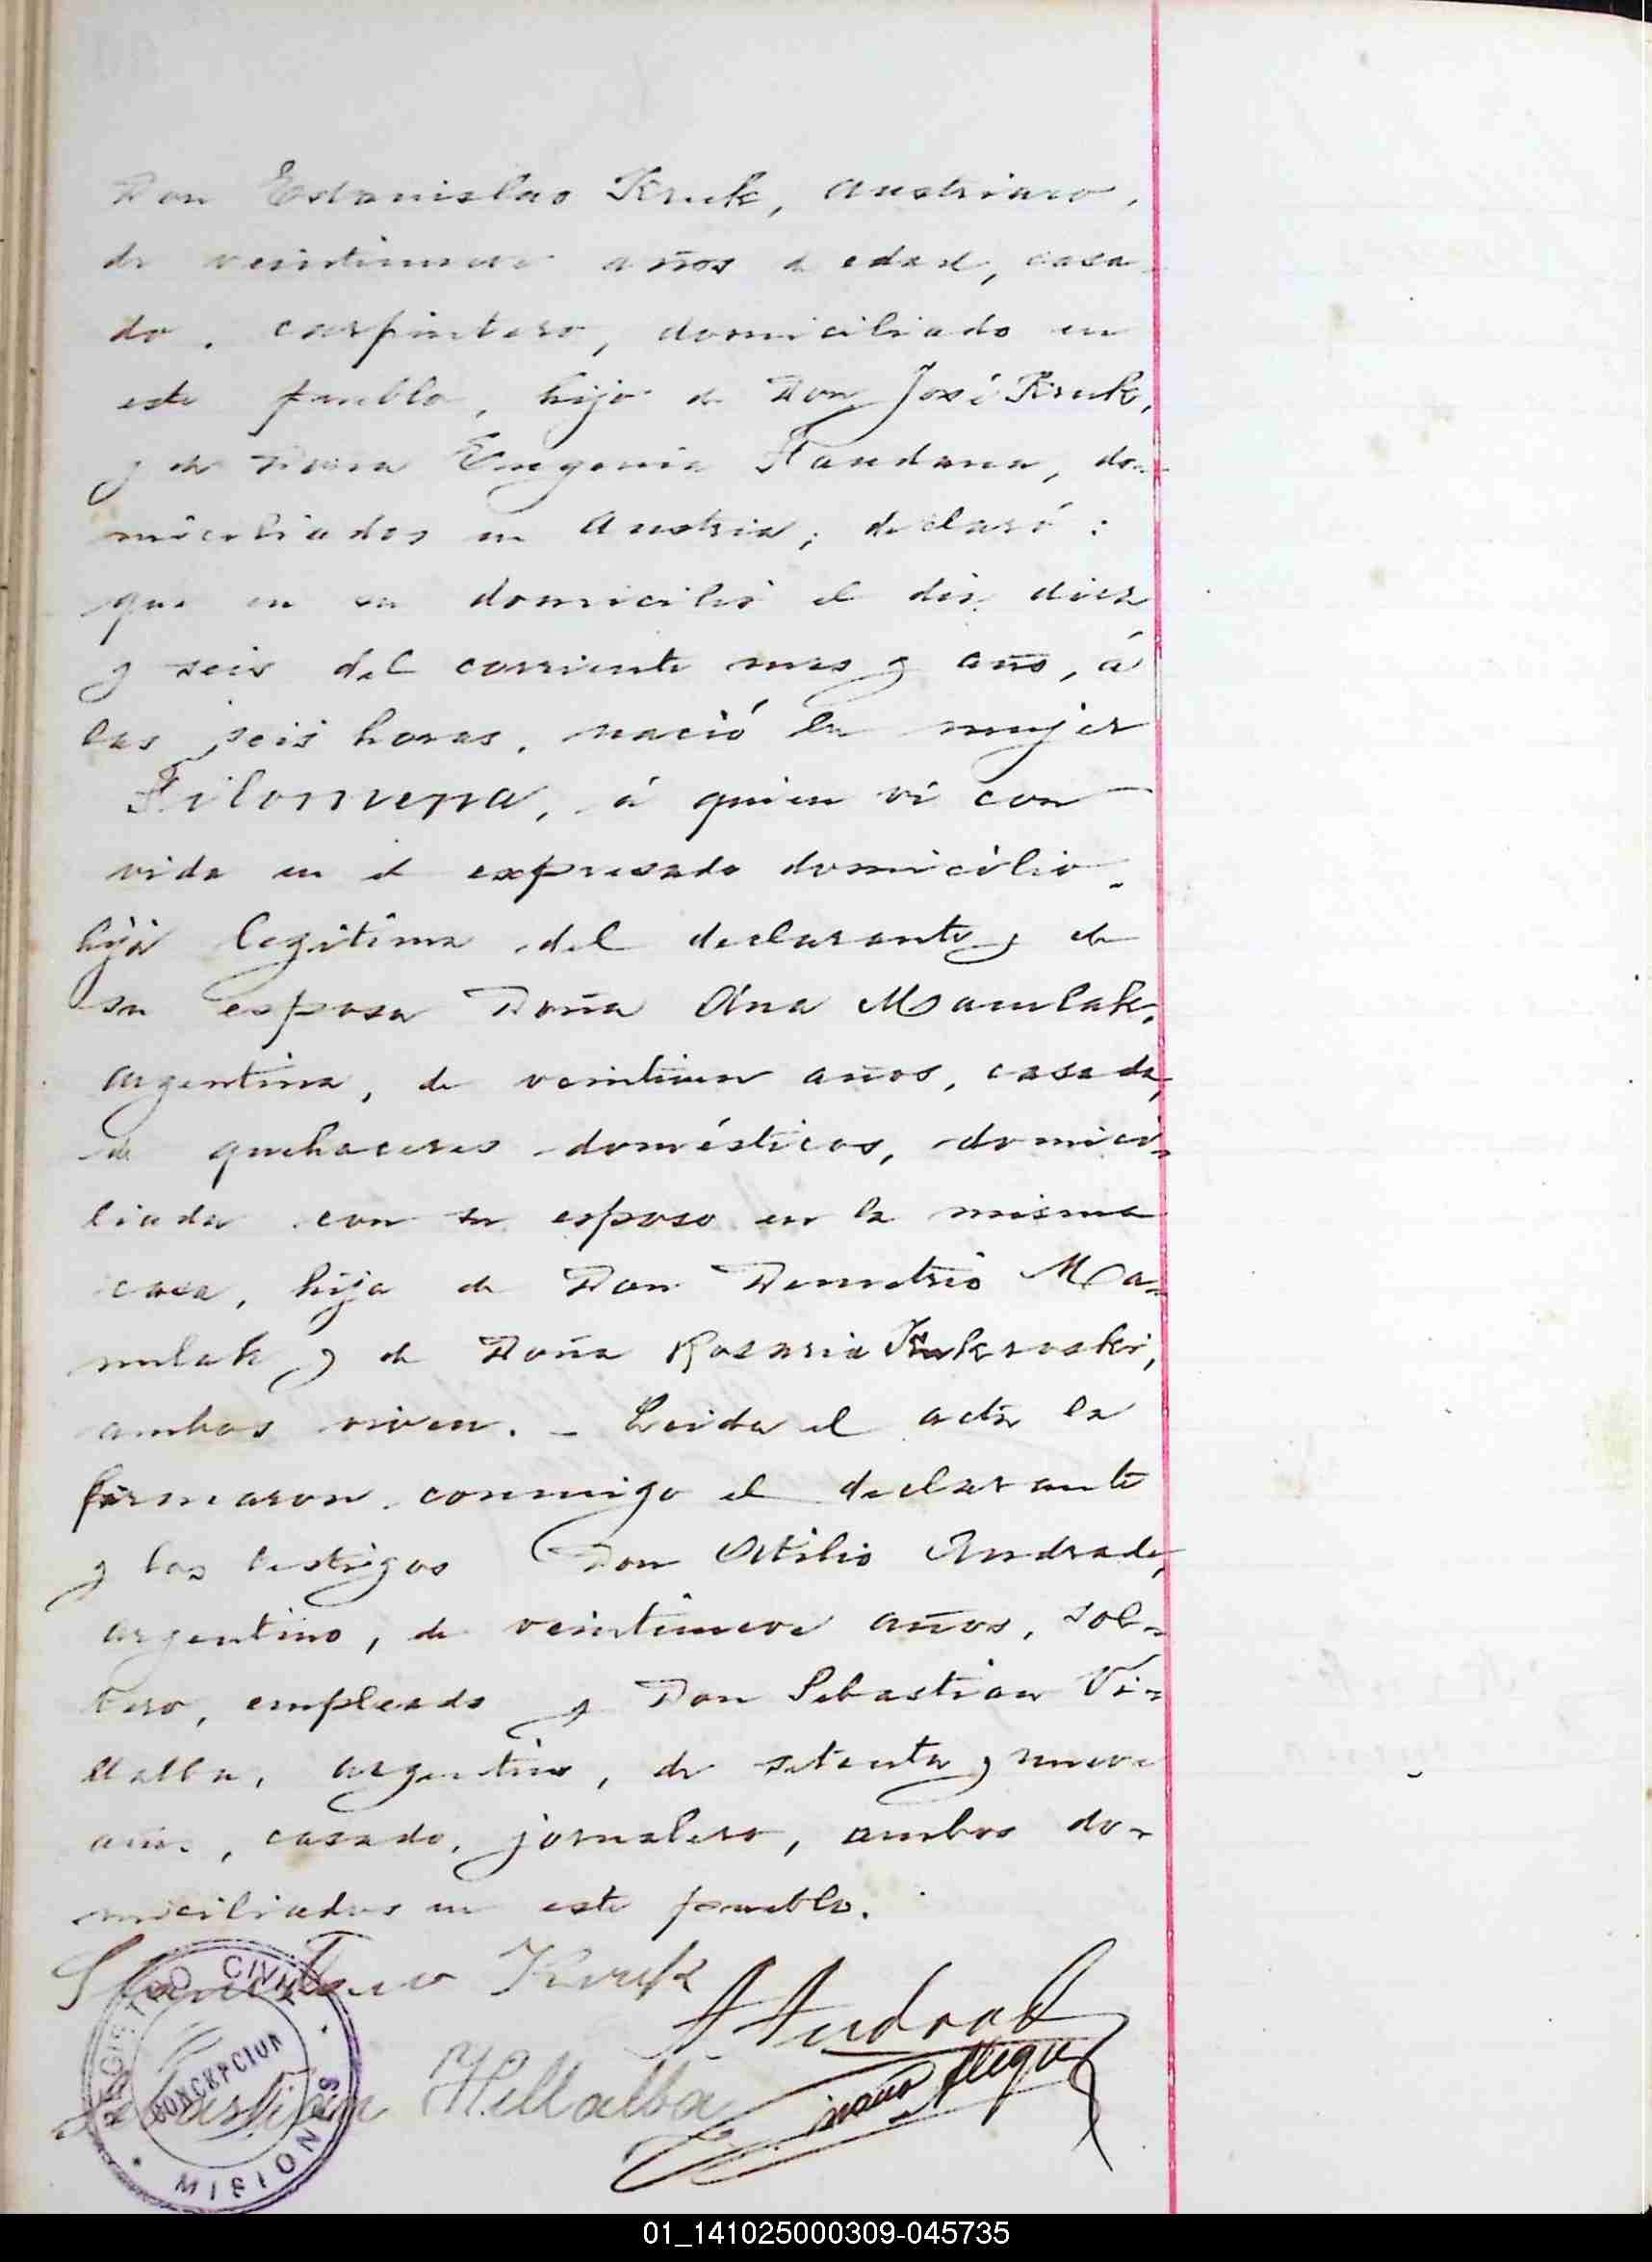 Don Estanislao Kruk, austriaco,
de veintinueve años de edad, casa-
do, carpintero, domiciliado en
este pueblo, hijo de Don José Kruk,
y de Doña Eugenia Fandana, do-
miciliados en Austria; declaró:
que en su domicilio el dia diez
y seis del corriente mes y año, á
las seis horas, nació la mujer
Filomena, á quien vi con
vida en el expresado domicilio,
hija legitima del declarante y de
su esposa Doña Ana Maculak,
argentina, de veintiun años, casada,
de quehaceres domésticos, domici-
liada con su esposo en la misma
casa, hija de Don Demetrio Ma-
culak y de Doña Rosaria
ambos viven. - Leida el acta la
firmaron conmigo el declarante
y los testigos Don Atilio Andrade,
argentino, de veintinueve años, sol-
tero, empleado y Don Sebastian Vi-
llalba, argentino, de setenta y nueve
años, casado, jornalero, ambos do-
miciliados en este pueblo.
Kruk
A Andrade
Sebastian Villalba
REGISTRO CIVIL
CONCEPCION
MISIONES
01_141025000309-045735